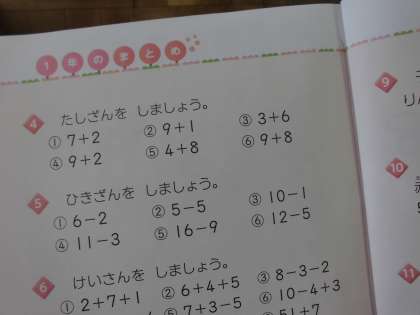 1年のまとめ
4 たしざんを しましょう。
① 7+2 ② 9+1 ③ 3+6
④ 9+2 ⑤ 4+8 ⑥ 9+8
5 ひきざんを しましょう。
① 6-2 ② 5-5 ③ 10-1
④ 11-3 ⑤ 16-9 ⑥ 12-5
6 けいさんを しましょう。
① 2+7+1 ② 6+4+5 ③ 8-3-2
⑤ 7+3-5 ⑥ 10-4+3
51+7
9
10
11